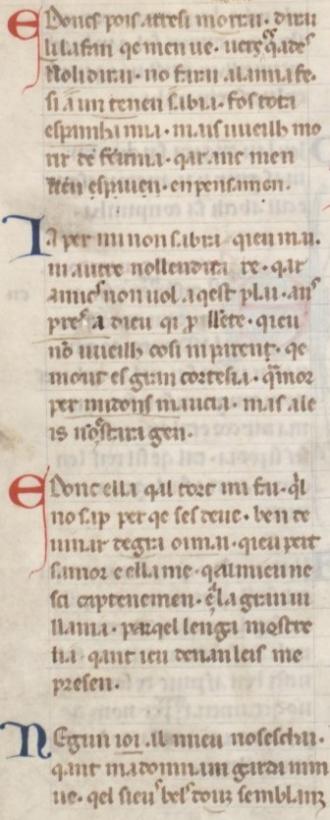 E Doncs pois atresi morrai. dirai
li lafan qe men ue. uers q̃ ades
No li dirai. no farai a la ma fe.
si a un tenen sabia. fos tota
espanha mia. mais uueilh mo
rir de feunia. qar anc men
uen espauen. en pensamen.
Ia per mi non sabra. qieu mai.
ni autre nol lendira re. qar
amics non uol aqest plai. ans
a dieu qi
no uueilh cosi ni parent. qe
mout es gran cortesia. qamor
per midons maucia. mas ale
is non estara gen.
E Donc ella qal tort mi fai. qil
no sap per qe ses deue. ben de
uinar degra oimai. qieu
samor e ella me. qal mieu ne
sci captenemen. e la gran ui
llania. par qel lenga
lia. qant ieu denan leis me
presen.
N Egun ioi al mieu no seschai.
qant ma domnam garda nim
ue. qel sieus bels douz semblanz